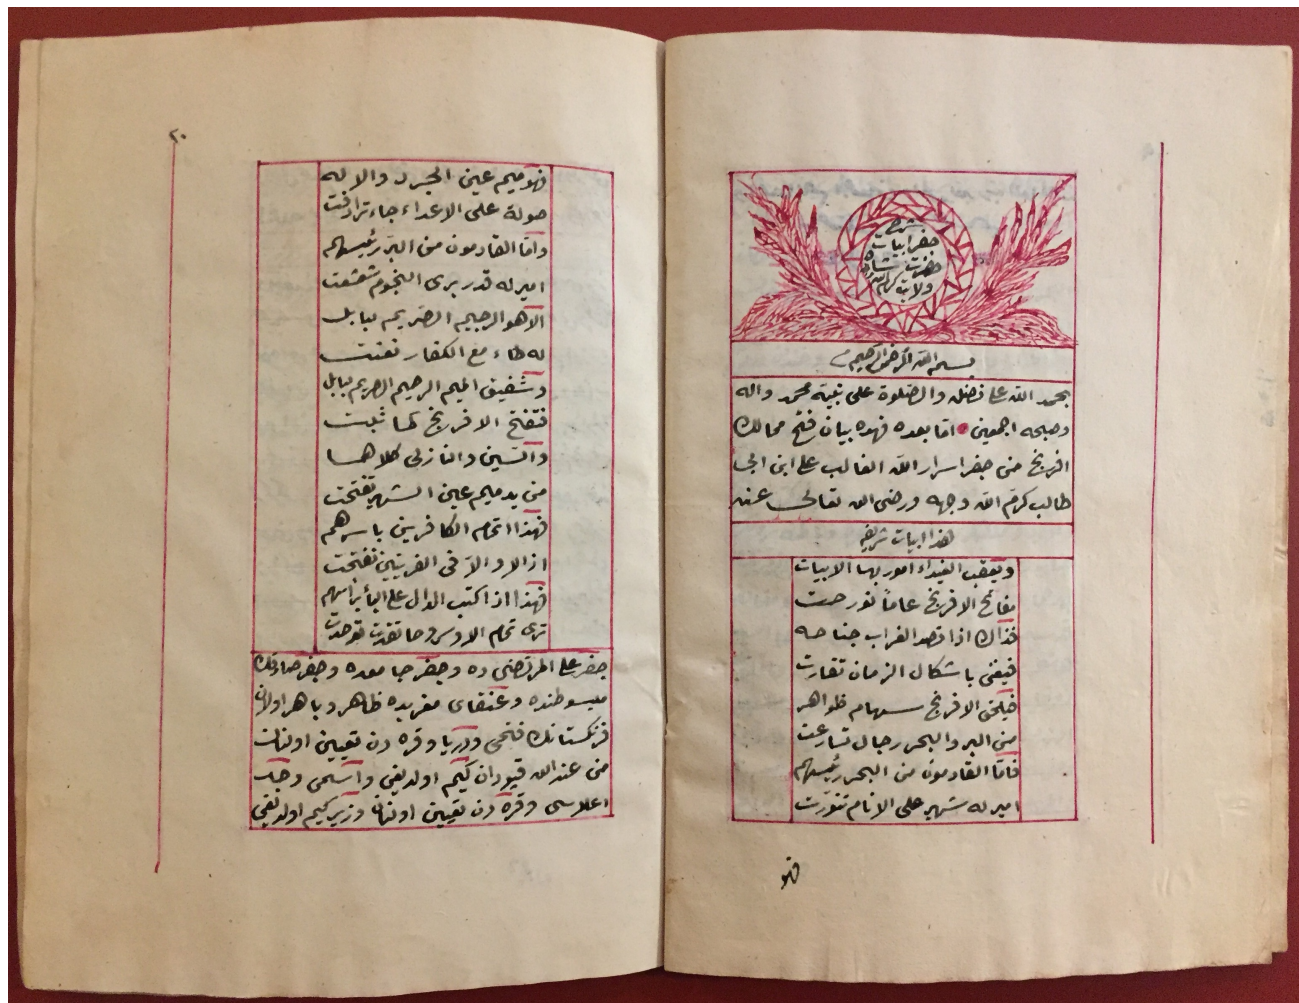 بشرح
جفر ابيات
حضرت شاه
ولايت كرم الله وجهه
بسم الله الرحمن الرحيم
بحمد الله على فضله والصلوة على نبيه محمد واله
وصبحه اجمعين اما بعده فهذه بيان فتح ممالك
افرنج من جفر اسرار الله الغالب على ابن ابى
طالب كرم الله وجهه ورضى الله تعالى عنه
هذا ابيات شريفه
ويعقب الفيداء امور بها الابيات
مفاتح الافرنج عاماً تورخت
فذاك اذا قصد الغراب جناحه
فيفنى باشكال الزمان تقارت
فيلحق الافرنج سهام ظواهر
من البر والبحر رجال تسارعت
فاما القادمون من البحر رئيسهم
امير له شهر على الانام تنورت
فهو
٢٠
فهو ميم عين الجرد والا له
صولة على الاعداء جاء ترادفت
واما القادمون من البر رئيسهم
امير له قدر يرى النجوم تشعشعت
الا هو الرجيم الصريم ببابل
له طاء مع الكفار تفنت
وشفيق الميم الرحيم الصريم ببابل
فتفتح الافرنج لما ثبت
والسين والنازلى كلاهما
من يد ميم عين الشهر تفتحت
فهذا اتمام الكافرين باسرهم
اذ الار والا فى القريتين تفتحت
فهذا اذا كتب الدال على الباء برأسهم
ترى تمام الاوس وما تقدت توحدت
جفر على المرتضى ده وجفر جامعده وجفر صادقك
مبسوطنده وعنقاى مغربده ظاهر وباهر اولان
فرنكستانك فتحى ودريا وقره دن تعيين اولنان
من عند الله قپودان كيم اولديغى واسمى وجك
اعلاسى وقره دن تعيين اولنان وزير كيم اولديغى